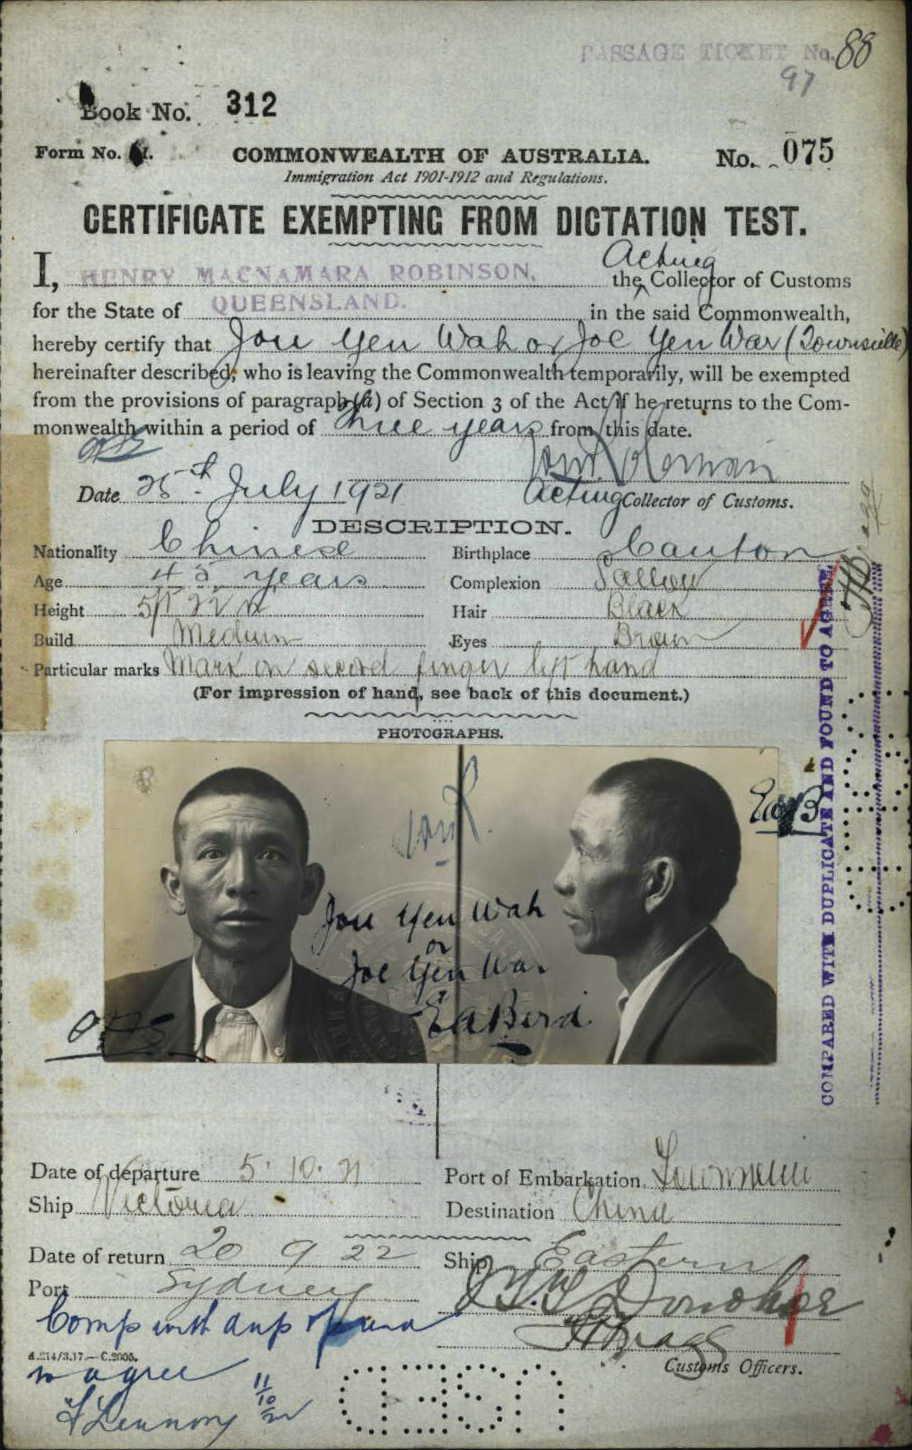 PASSAGE TICKET No. 88
97
Book No. 312
Form No.
COMMONWEALTH OF AUSTRALIA. No. 075
Immigration Act 1901-1912 and Regulations.
CERTIFICATE EXEMPTING FROM DICTATION TEST.
I, HENRY MACNAMARA ROBINSON, the Acting Collector of Customs
for the State of QUEENSLAND. in the said Commonwealth,
hereby certify that Jou Yen Wah or Joe Yen War (Townsville)
hereinafter described, who is leaving the Commonwealth temporarily, will be exempted
from the provisions of paragraph (a) of Section 3 of the Act if he returns to the Com-
monwealth within a period of three years from this date.
Date 25th July 1921 Acting Collector of Customs.
DESCRIPTION.
Nationality Chinese Birthplace Canton
Age 45 years Complexion Sallow
Height 5ft Hair Black
Build Medium Eyes Brown
Particular marks Mark on second finger left hand
(For impression of hand, see back of this document.)
PHOTOGRAPHS.
Jou Yen Wah
or
Joe Yen War
EaBird
EaB
COMPARED WITH DUPLICATE AND FOUND TO AGREE.
Date of departure 5.10.21 Port of Embarkation Townsville
Ship Victoria Destination China
Date of return 20 9 22 Ship Eastern
Port Sydney
Comp with dup found
to agree
Customs Officers.
11/10/22